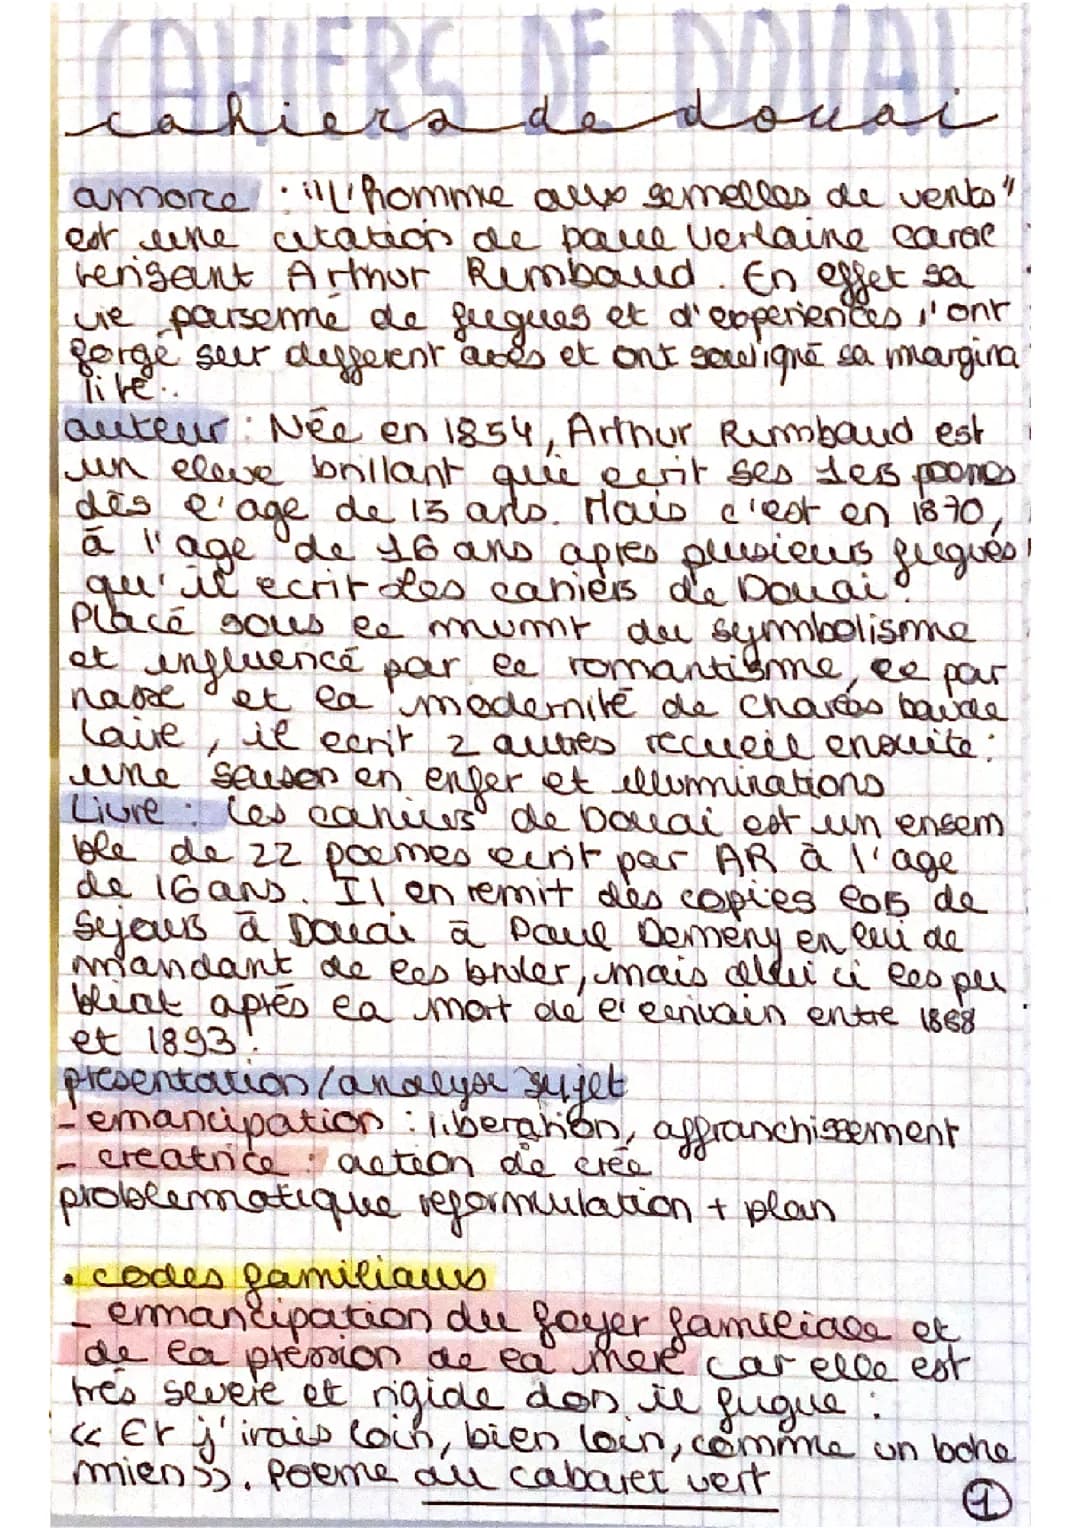 CAHIERS DE DOUAI
cahiers de douai
amorce : "L'homme aux semelles de vents"
est une citation de paul Verlaine carac
terisant Arthur Rimbaud. En effet sa
vie parsemé de fugues et d'experiences l'ont
forgé sur different axes et ont souligné sa margina
lité.
auteur : Née en 1854, Arthur Rimbaud est
un eleve brillant qui ecrit ses 1ers poemes
dès l'age de 15 ans. Mais c'est en 1870,
à l'age de 16 ans apres plusieurs fugues
qu'il ecrit Les cahiers de Douai.
Placé sous le mvmt du symbolisme
et influencé par le romantisme, le par
nasse et la modernité de Charles baude
laire, il ecrit 2 autres recueil ensuite :
une saison en enfer et illuminations
Livre : Les cahiers de Douai est un ensem
ble de 22 poemes ecrit par AR à l'age
de 16 ans. Il en remit des copies lors de
sejours à Douai à Paul Demeny en lui de
mandant de les bruler, mais celui ci les pu
bliat après la mort de l'ecrivain entre 1868
et 1893.
presentation/analyse sujet
- emancipation : liberation, affranchissement
- creatrice : action de crée
problematique reformulation + plan
• codes familiaux
- emancipation du foyer familiale et
de la pression de la mere car elle est
très severe et rigide don il fugue :
« Et j'irais loin, bien loin, comme un bohe
mien ». Poeme au cabaret vert
1